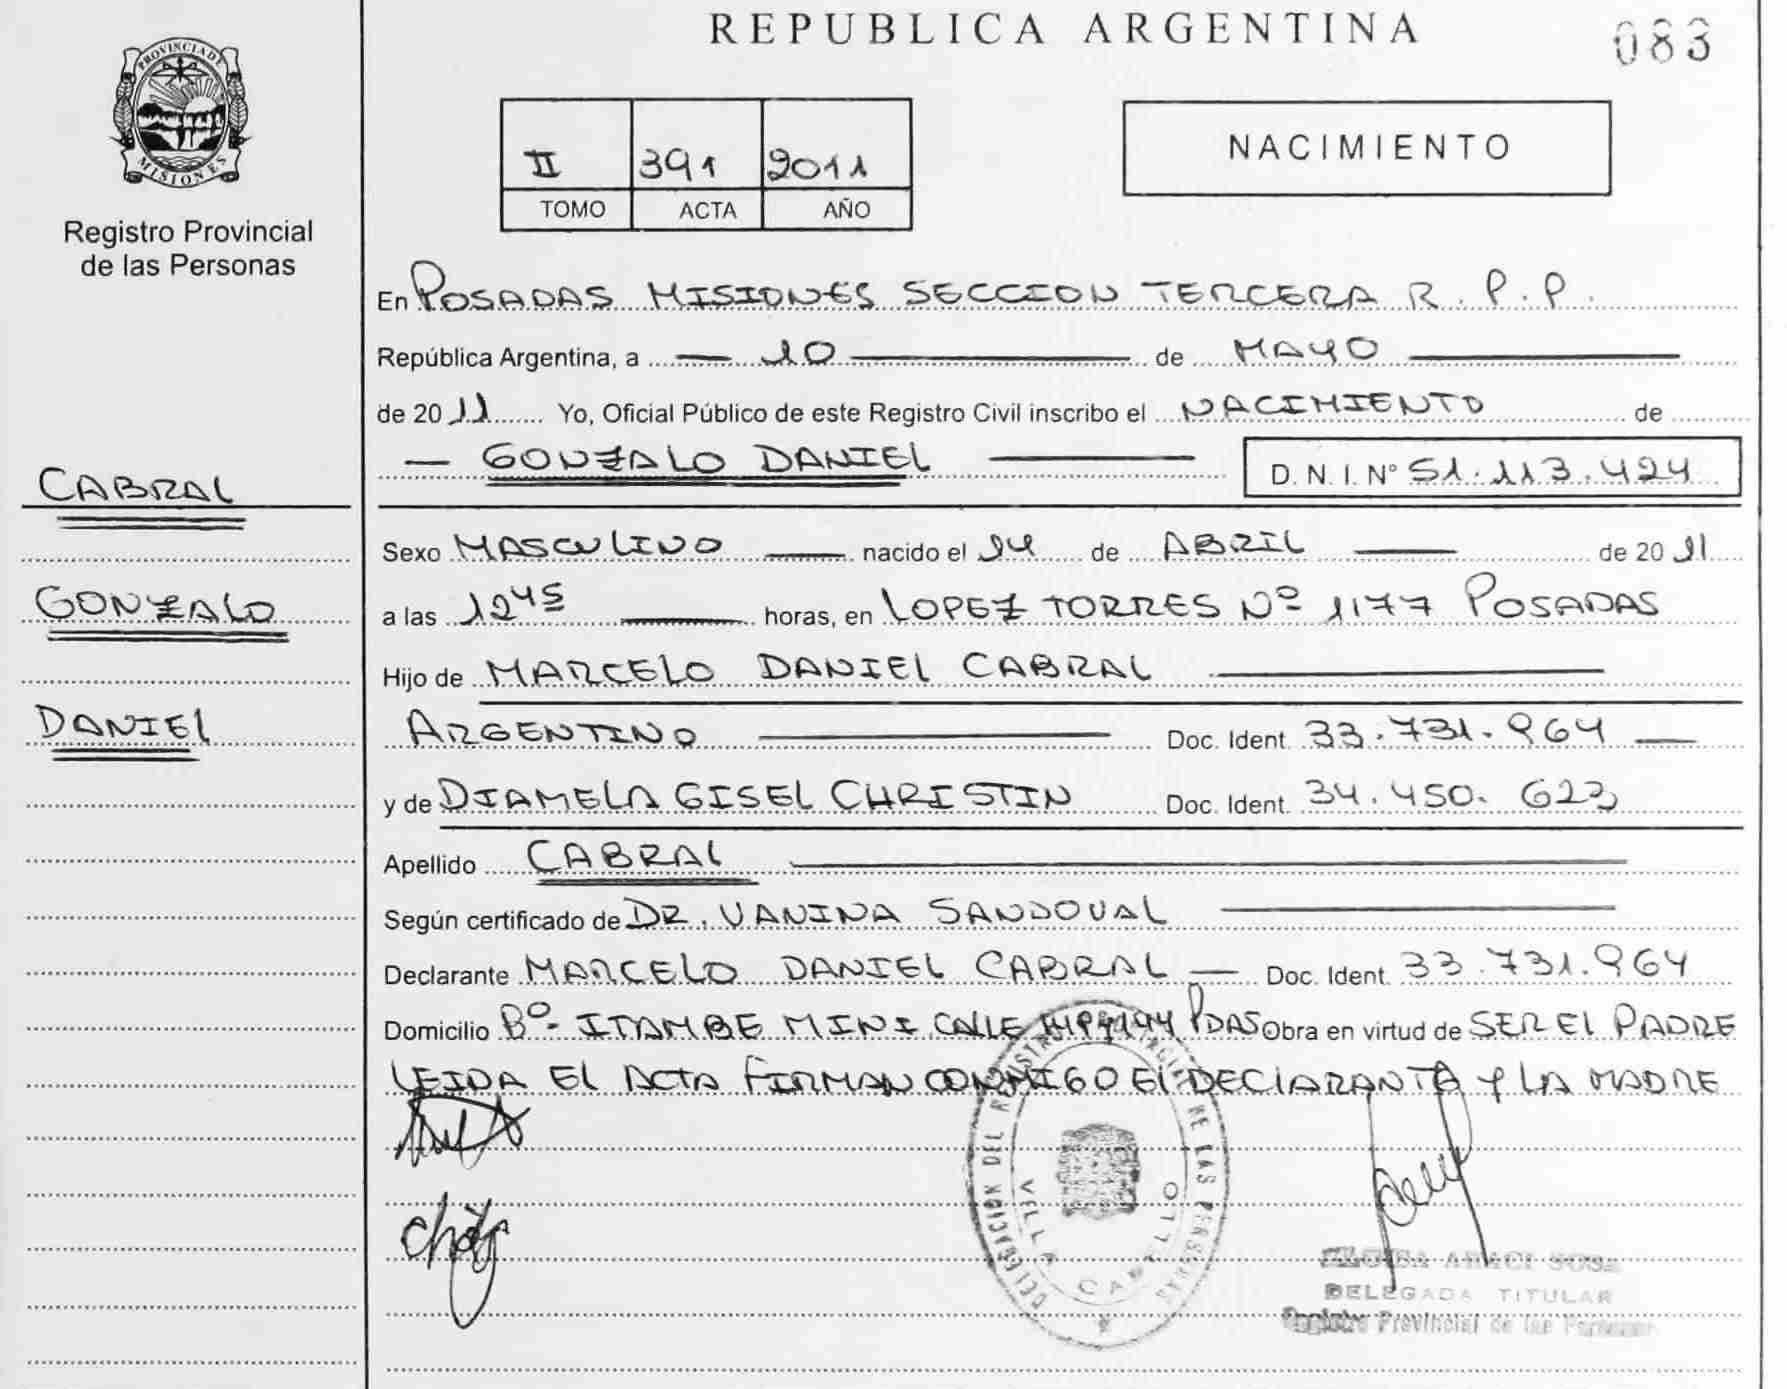 REPUBLICA ARGENTINA
083
PROVINCIA DE
MISIONES
Registro Provincial
de las Personas
II 391 2011
TOMO ACTA AÑO
NACIMIENTO
En POSADAS MISIONES SECCION TERCERA R. P. P.
República Argentina, a 10 de MAYO
de 2011 Yo, Oficial Público de este Registro Civil inscribo el NACIMIENTO de
GONZALO DANIEL D. N. I. N° 51.113.424
CABRAL
GONZALO
DANIEL
Sexo MASCULINO nacido el 14 de ABRIL de 2011
a las 12 45 horas, en LOPEZ TORRES Nº 1177 POSADAS
Hijo de MARCELO DANIEL CABRAL
ARGENTINO Doc. Ident. 33.731.964
y de DIAMELA GISEL CHRISTIN Doc. Ident. 34.450.623
Apellido CABRAL
Según certificado de DR. VANINA SANDOVAL
Declarante MARCELO DANIEL CABRAL Doc. Ident. 33.731.964
Domicilio Bº ITAMBE MINI CALLE PDAS Obra en virtud de SER EL PADRE
LEIDA EL ACTA FIRMAN CONMIGO EL DECLARANTE Y LA MADRE
DELEGACION DEL REGISTRO PROVINCIAL DE LAS PERSONAS
VILLA CABELLO
ARACI SOSA
DELEGADA TITULAR
Registro Provincial de las Personas